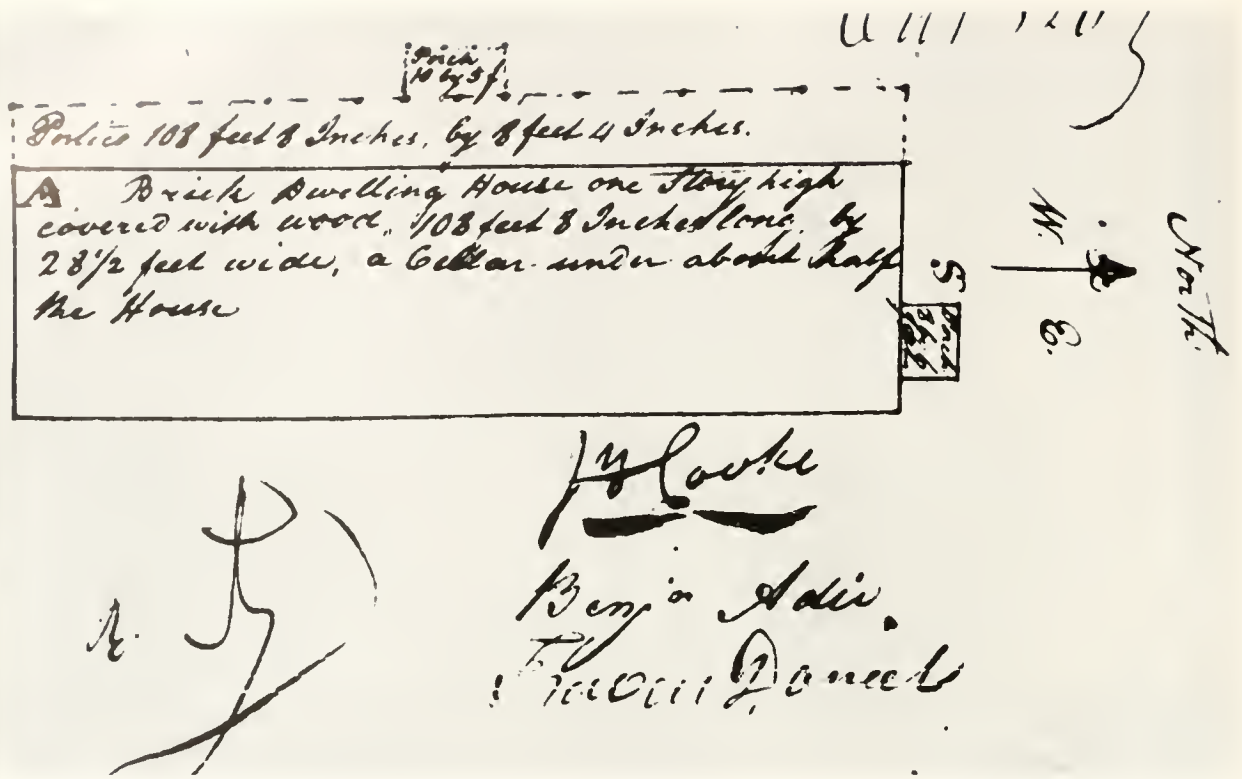 Porch
10 by 5 f.
Portico 108 feet 8 Inches, by 8 feet 4 Inches.
A Brick Dwelling House one Story high
covered with wood, 108 feet 8 Inches long, by
28½ feet wide, a Cellar under about half
the House
S
W.
E.
North.
Cooke
Benja Adie
Daniel